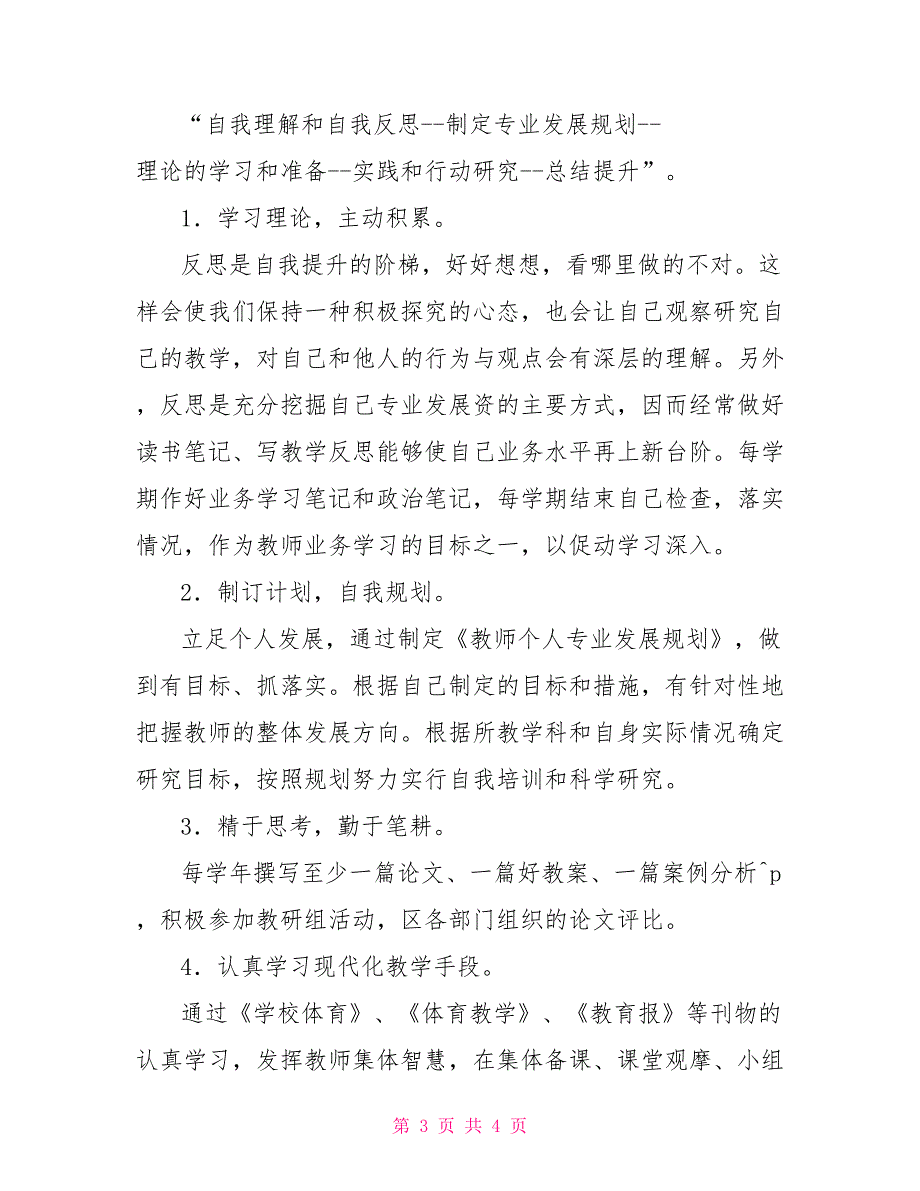 “自我理解和自我反思--制定专业发展规划--
理论的学习和准备--实践和行动研究--总结提升”。
1．学习理论，主动积累。
反思是自我提升的阶梯，好好想想，看哪里做的不对。这
样会使我们保持一种积极探究的心态，也会让自己观察研究自
己的教学，对自己和他人的行为与观点会有深层的理解。另外
，反思是充分挖掘自己专业发展资的主要方式，因而经常做好
读书笔记、写教学反思能够使自己业务水平再上新台阶。每学
期作好业务学习笔记和政治笔记，每学期结束自己检查，落实
情况，作为教师业务学习的目标之一，以促动学习深入。
2．制订计划，自我规划。
立足个人发展，通过制定《教师个人专业发展规划》，做
到有目标、抓落实。根据自己制定的目标和措施，有针对性地
把握教师的整体发展方向。根据所教学科和自身实际情况确定
研究目标，按照规划努力实行自我培训和科学研究。
3．精于思考，勤于笔耕。
每学年撰写至少一篇论文、一篇好教案、一篇案例分析^p
，积极参加教研组活动，区各部门组织的论文评比。
4．认真学习现代化教学手段。
通过《学校体育》、《体育教学》、《教育报》等刊物的
认真学习，发挥教师集体智慧，在集体备课、课堂观摩、小组
第 3 页 共 4 页